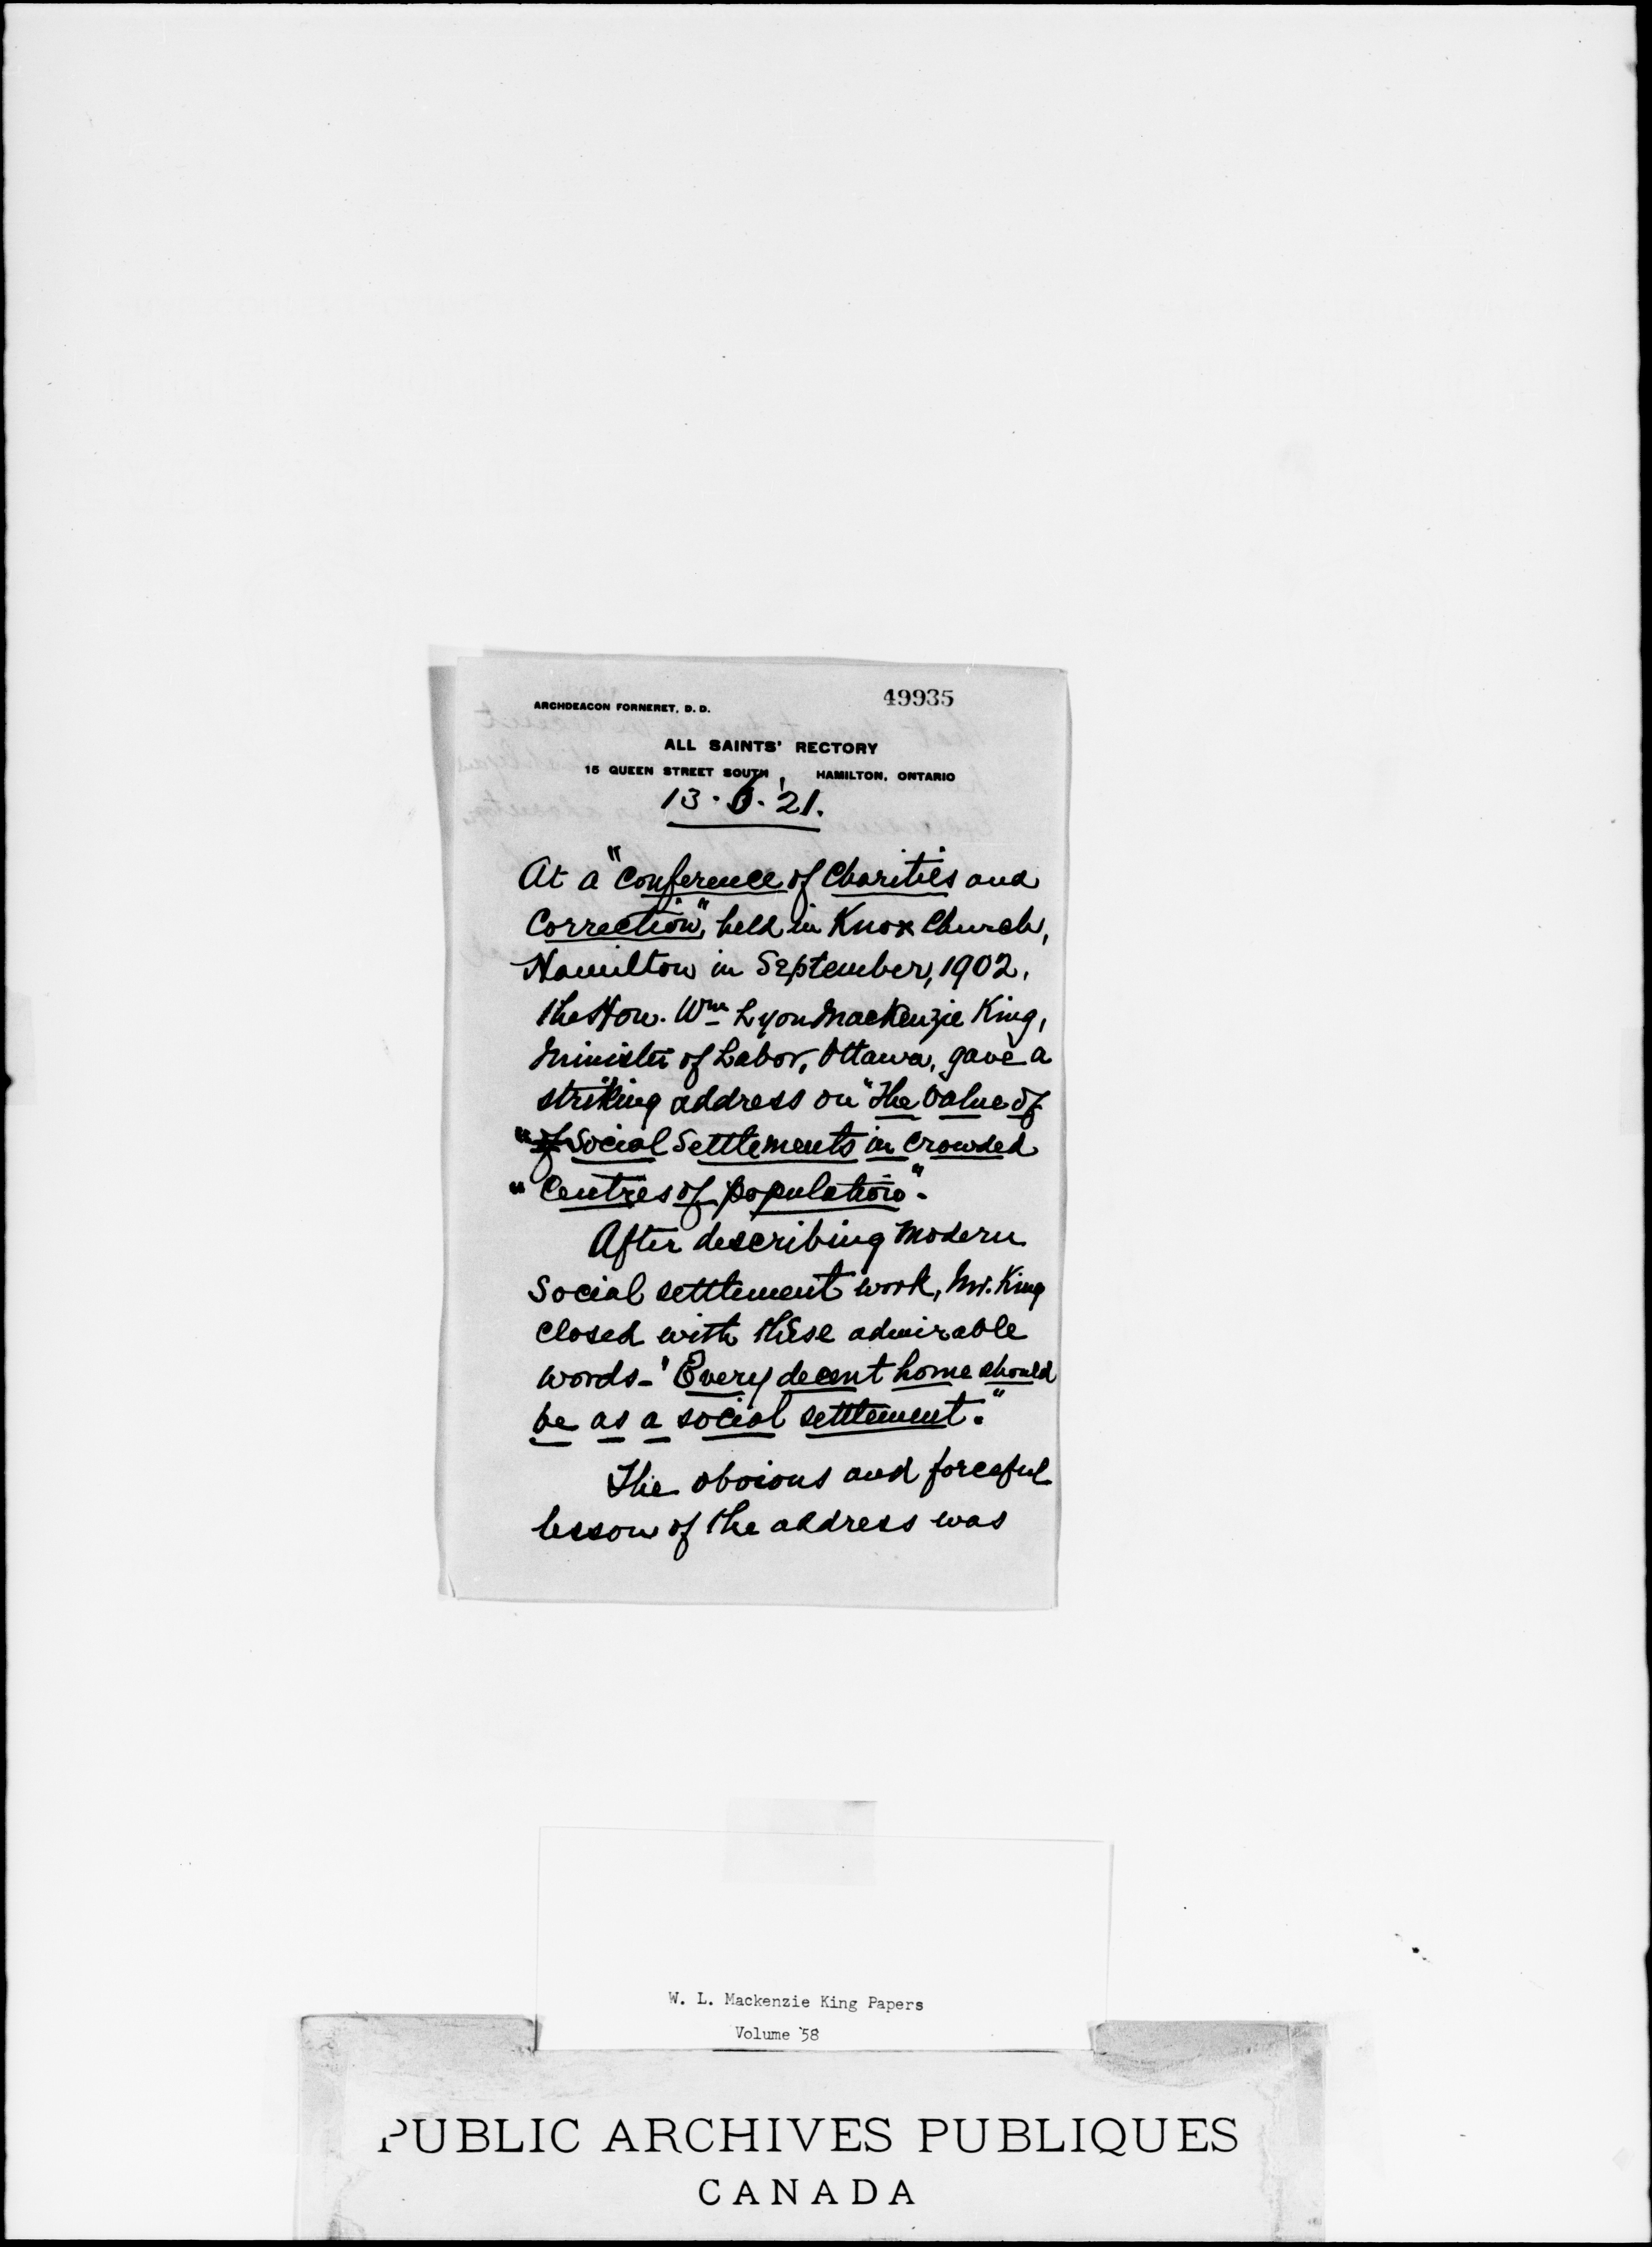 49935
ARCHDEACON FORNERET, D. D.
ALL SAINTS' RECTORY
15 QUEEN STREET SOUTH, HAMILTON, ONTARIO
13. 6. '21.
At a "Conference of Charities and
Correction", held in Knox Church,
Hamilton in September, 1902,
the Hon. Wm Lyon MacKenzie King,
Minister of Labor, Ottawa, gave a
striking address on "The Value of
"of Social Settlements in Crowded
"Centres of population".
After describing modern
Social settlement work, Mr. King
closed with these admirable
words - "Every decent home should
be as a social settlement."
The obvious and forceful
lesson of the address was
W. L. Mackenzie King Papers
Volume 58
PUBLIC ARCHIVES PUBLIQUES
CANADA